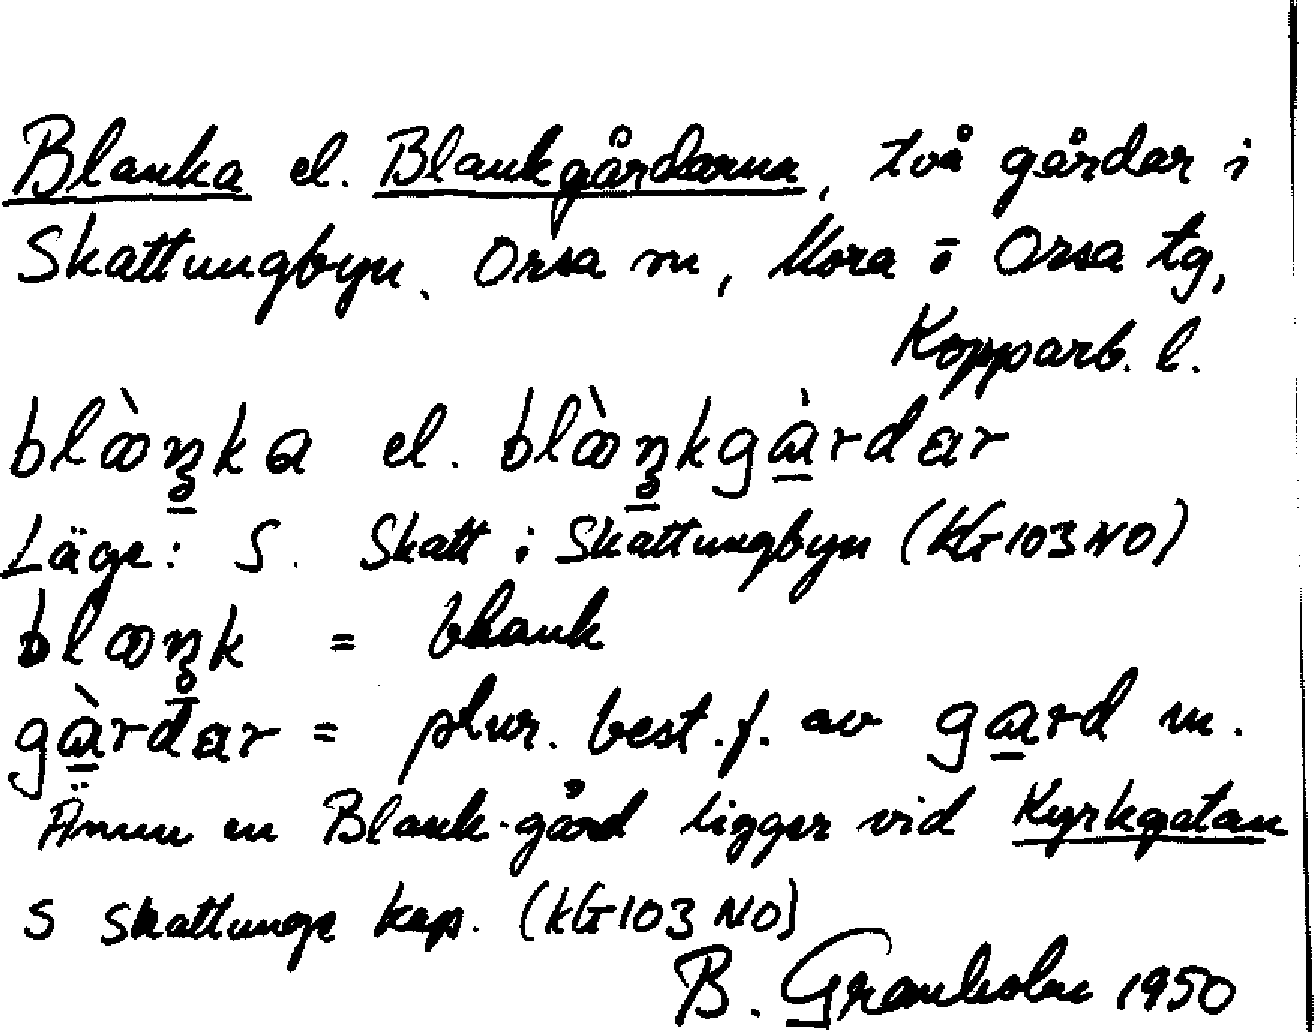 Blanka el. Blankgårdarna, två gårdar i
Skattungbyn, Orsa sn, Mora o Orsa tg,
Kopparb. l.
el.
Läge: S. Skatt i Skattungbyn (KG 103 NO)
= blank
= plur. best. f. av m.
Ännu en Blank-gård ligger vid Kyrkgatan
S Skattunge kap. (KG 103 NO)
B. Granholm 1950